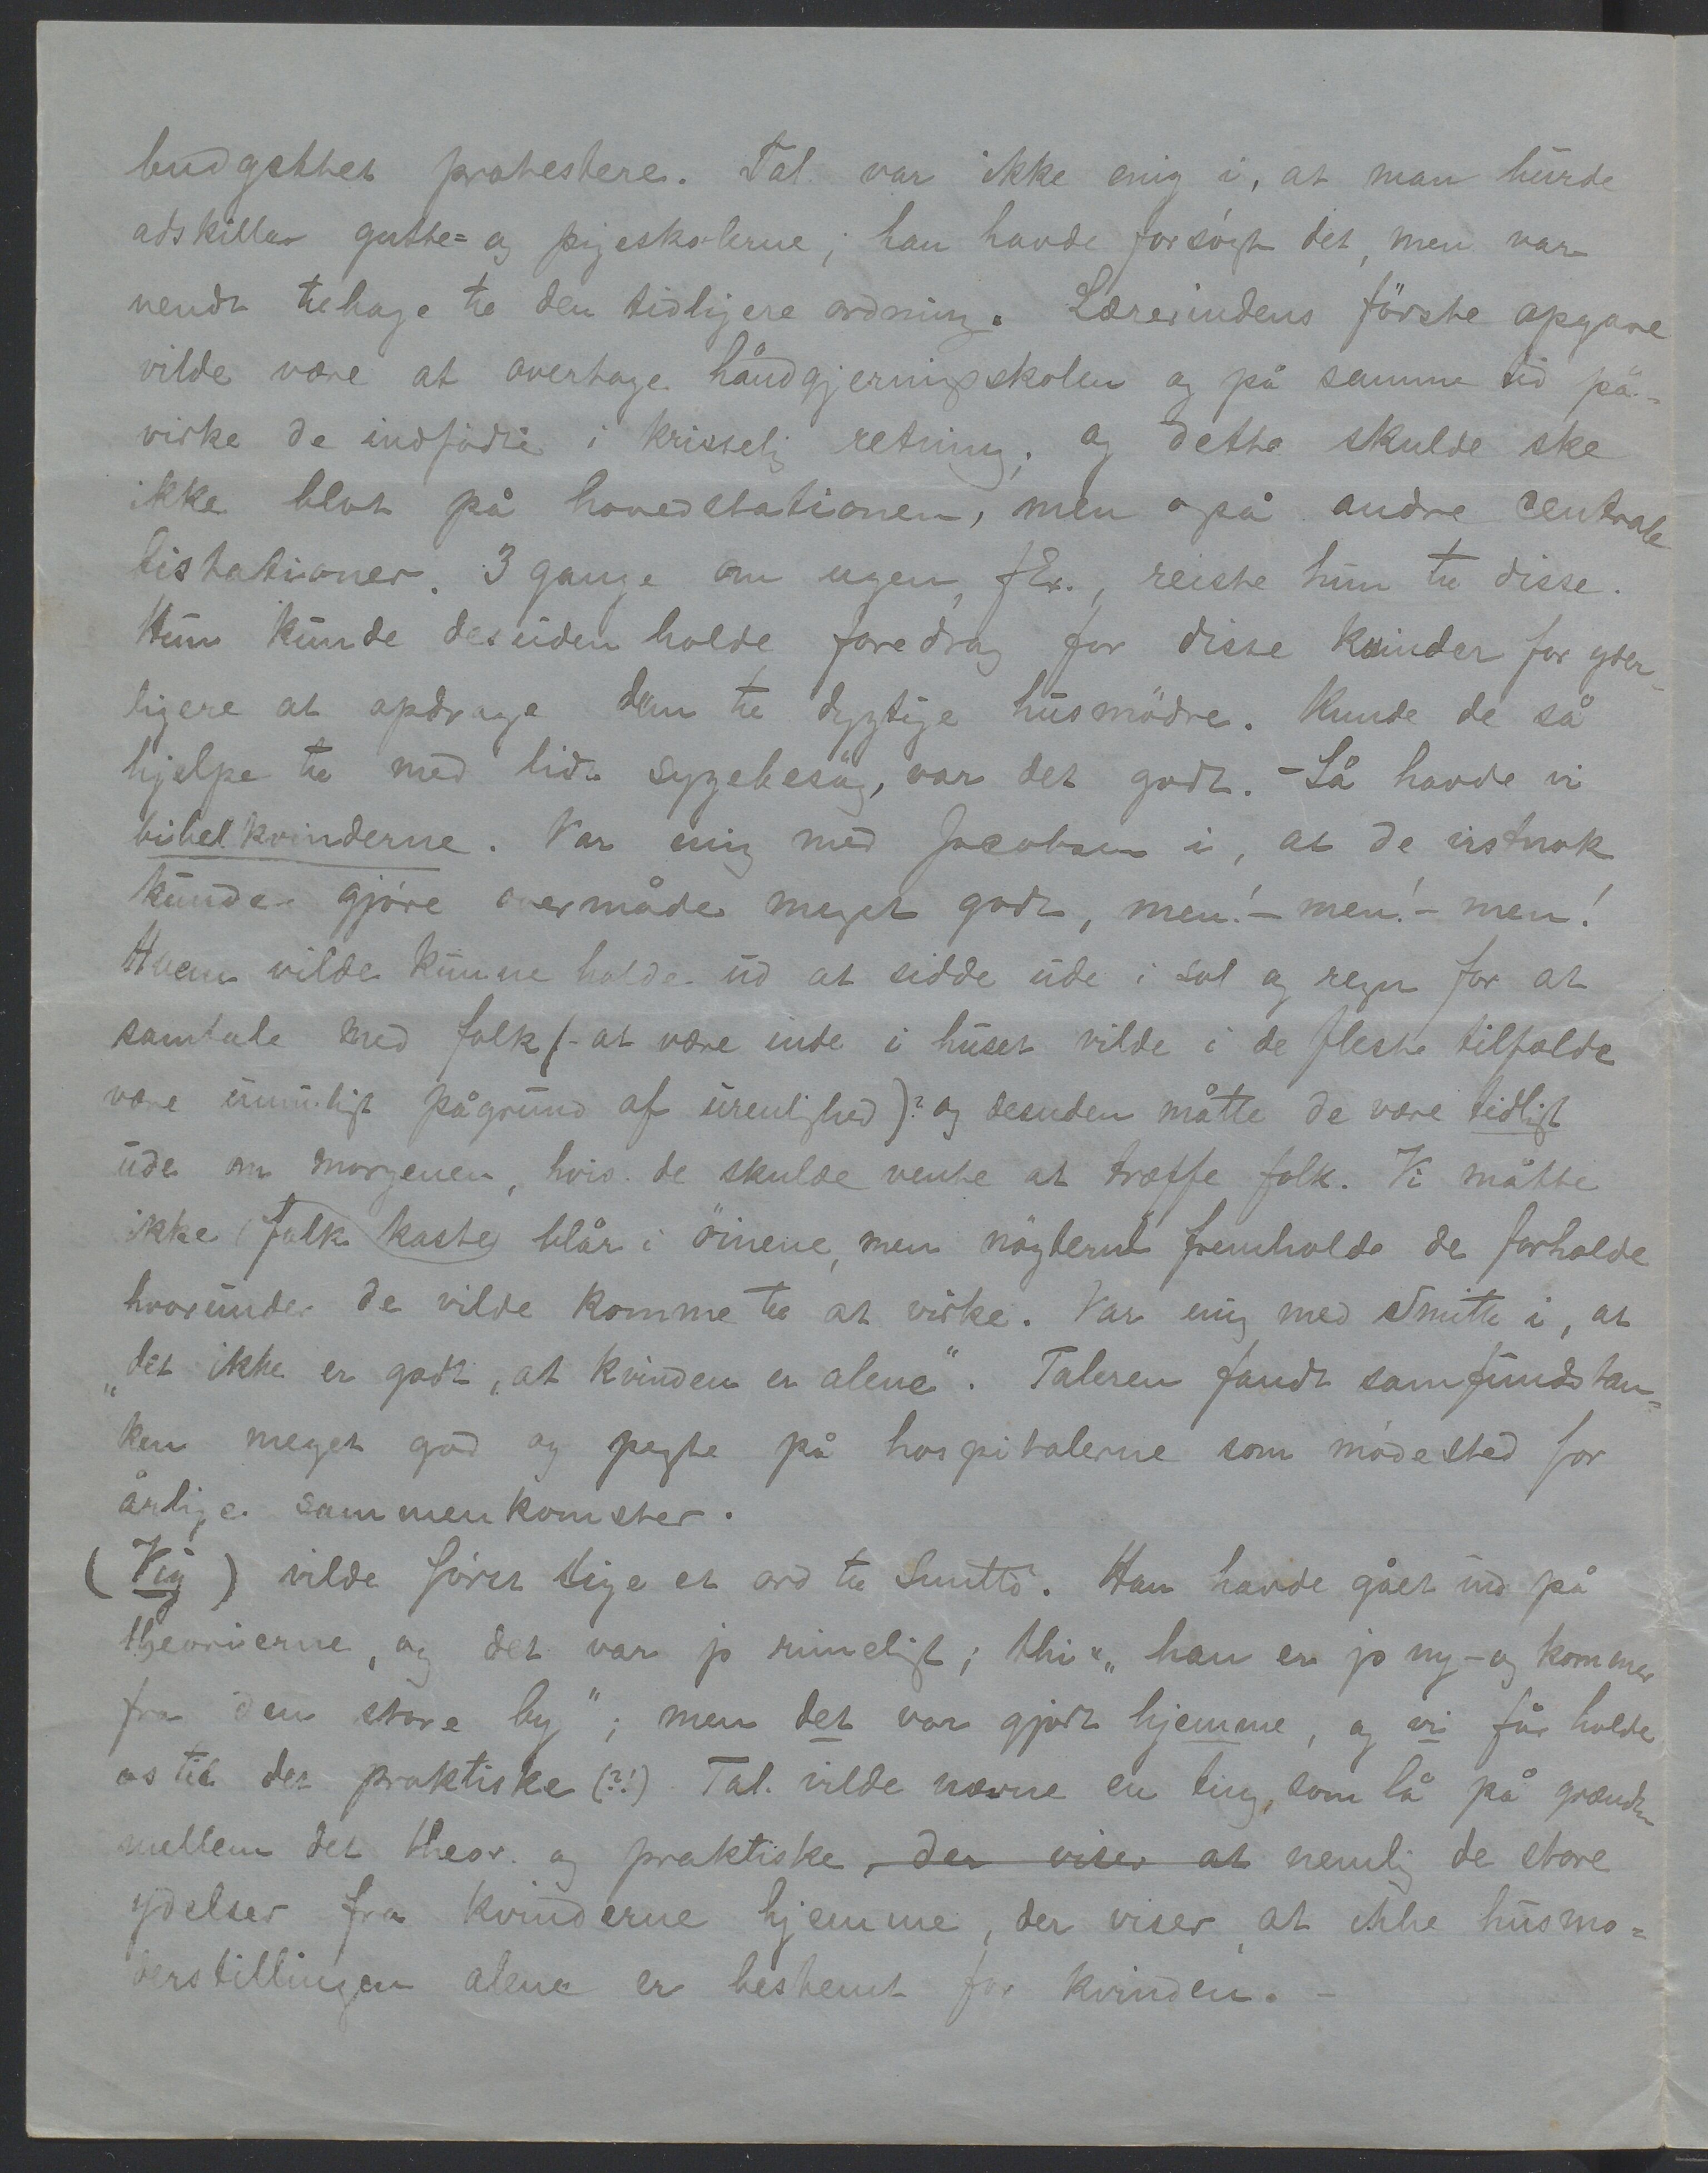 budgettet protestere. Tal. var ikke enig i, at man burde
adskiller gutte= og pigeskolerne; han havde forsögt det, men var
vendt tilbage til den tidligere ordning. Lærerindens förste opgave
vilde være at overtage håndgjerningsskolen og på samme tid på-
virke de indfödte i kristelig retning; og dette skulde ske
ikke blot på hovedstationen, men også andre centrale
bistationer. 3 gange om ugen, f.Ex., reiste hun til disse.
Hun kunde desuden holde foredrag for disse kvinder for yder-
ligere at opdrage dem til dygtige husmödre. Kunde de så
hjelpe til med lidt sygebesög, var det godt. - Så havde vi
bibelkvinderne. Var enig med Jacobsen i, at de vistnok
kunde gjöre overmåde meget godt, men! - men! - men!
Hvem vilde kunne holde ud at sidde ude i sol og regn for at
samtale med folk (- at være inde i huset vilde i de fleste tilfælde
være umuligt pågrund af urenlighed)? og desuden måtte de være tidligt
ude om morgenen, hvis de skulde vente at træffe folk. Vi måtte
ikke folk kaste blår i öinene, men nögternt fremholde de forholde
hvorunder de vilde komme til at virke. Var enig med Smith i, at
„det ikke er godt, at kvinden er alene". Taleren fandt samfundstan=
ken meget god og pegte på hospitalerne som mödested for
årlige sammenkomster.
(Vig) vilde först sige et ord til Smith. Han havde gået ind på
theorierne, og det var jo rimeligt; thi „han er jo ny - og kommer
fra den store by"; men det var gjort hjemme, og vi får holde
os til det praktiske (?!) Tal. vilde nævne en ting, som lå på grændsen
mellem det theor. og praktiske, der viser at nemlig de store
ydelser fra kvinderne hjemme, der viser, at ikke husmo=
derstillingen alene er bestemt for kvinden. -